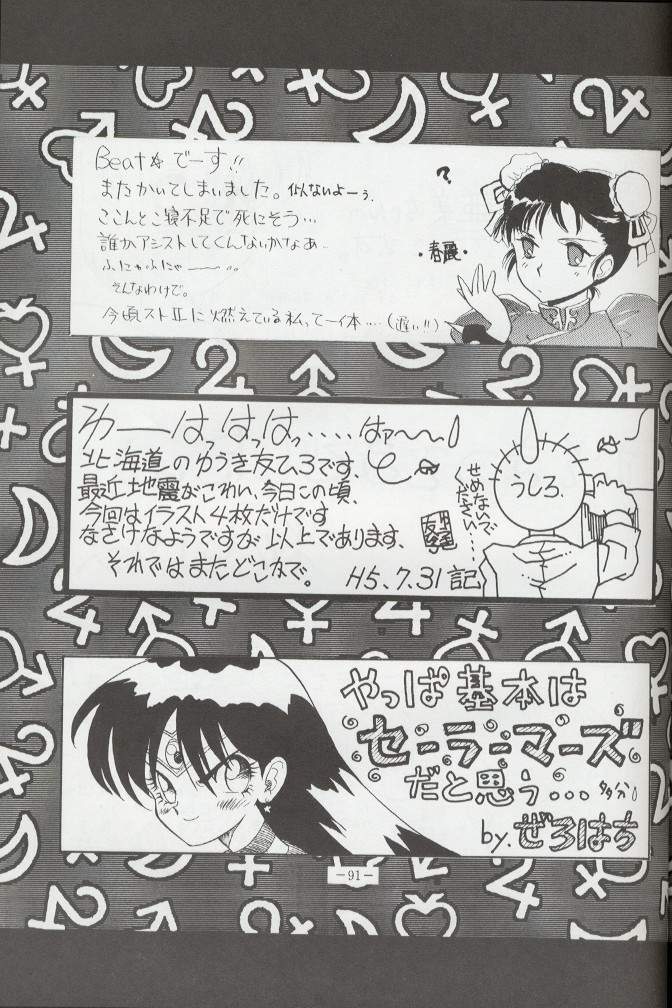 Beat☆でーす!!
またかいてしまいました。似んないよーぅ
ここんとこ寝不足で死にそう…
誰かアシストしてくんないかなあ…
ふにゃふにゃ――…
そんなわけで。
今頃ストⅡに燃えている私って一体‥‥(遅い!!)
?
・春麗・
わーはっはっはっ‥‥はァ〜〜!
北海道のゆうき友ひろです、
最近地震がこわい、今日この頃、
今回はイラスト4枚だけです
なさけなようですが以上であります、
それではまたどこかで。
H5.7.31記
せめないで
ください……
うしろ。
やっぱ基本は
セーラーマーズ
だと思う…多分!
by.ぜろはち
-91-